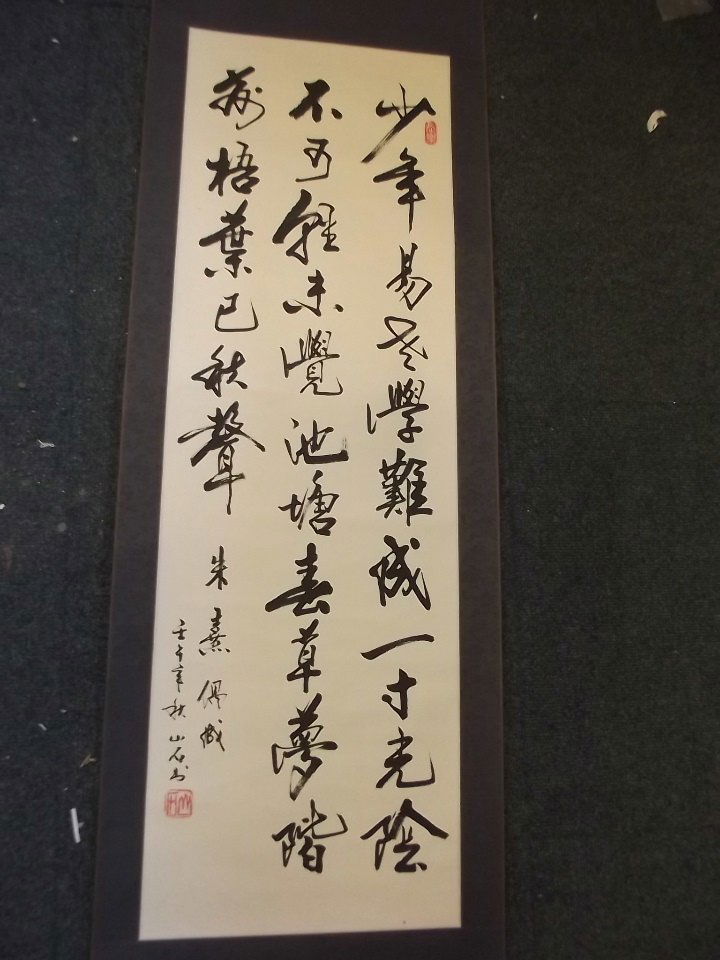 少年易老學難成一寸光陰
不可輕未覺池塘春草夢階
前梧葉已秋聲 朱熹偶成
壬午年秋山石书
山石